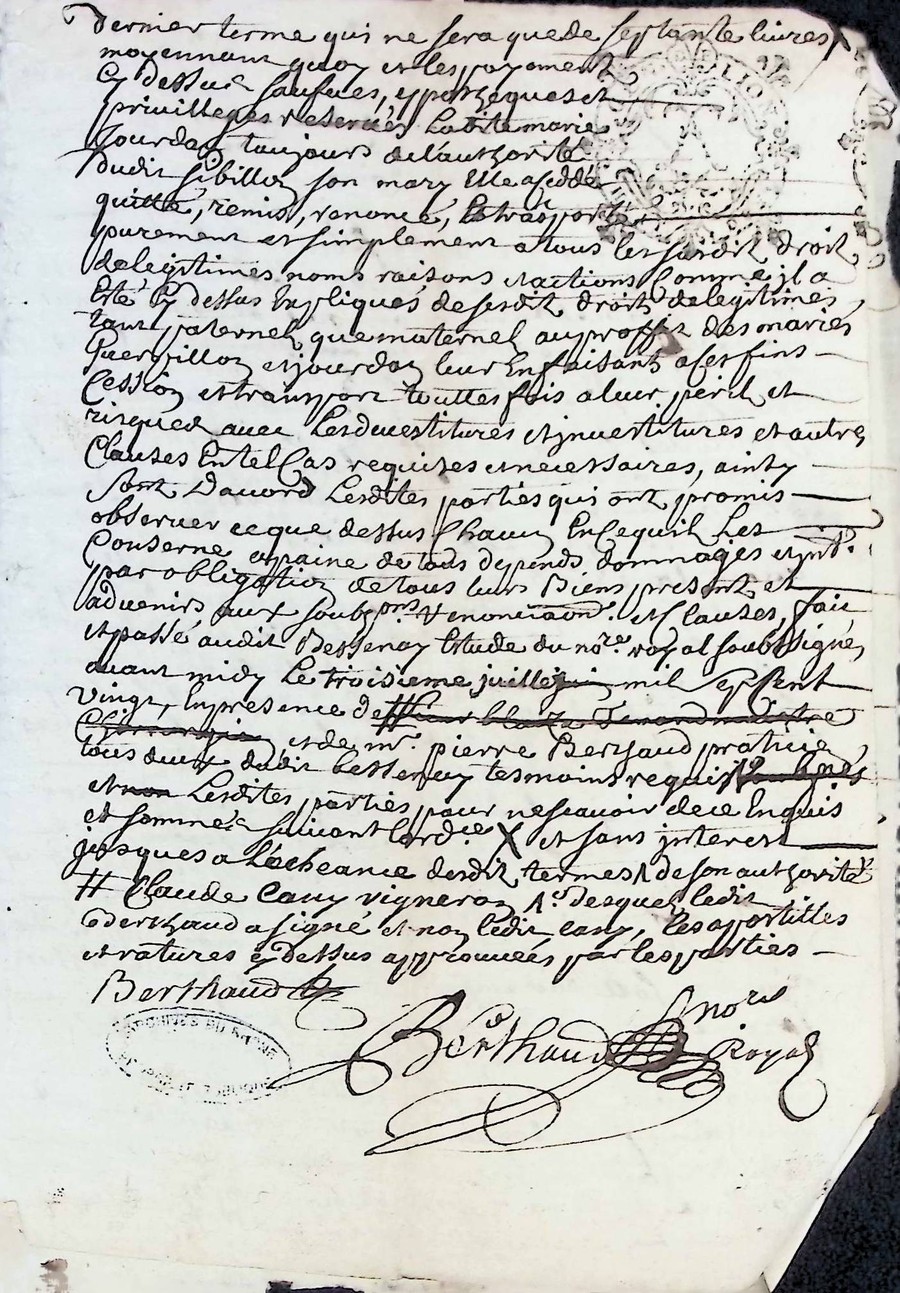 dernier terme qui ne sera que de septante livres
moyennant quoy et les payement
cy dessus saufues, ypotheques et
privilleges reservés laditte marie
Jourdan toujours de l'authorité
dudit Sibillon son mary Elle a cedde
quitté, remis, renoncé, Et trasporté
purement et simplement a tous les susdit droit
de legitimes noms raisons et actions Comme jl a
Esté Cy dessus Expliqués de sesdit droit de legitimes
tant paternel que maternel au proffit des mariés
et jourdan leur En faisant a ses fins
Cession et transport touttesfois a leur peril et
risques avec Les devestitures et jnvestitures et autres
Clauses En tel Cas requises et necessaires, ainsy
sont D'acord Lesdites parties qui ont promis
observer ce que dessus Chacun En Ce quil Les
Conserne a paine de tous depends dommages et jnts.
par obligation de tous leurs Biens present et
advenirs aux soubzons. renonciaons. et Clauses, fait
et passé audit Bessenay Etude du nore. royal soubsigné,
avant midy Le troisieme juillet mil sept Cent
vingt, En presence de
et de mr. pierre Berthaud praticien
tous deux dudit bessenay tesmoins requis
et non Lesdites parties pour ne scavoir de ce Enquis
et sommés suivant Lordce X et sans interest
jusques a L'écheance desdit termes Λ de son authorité
# Claude Cany vigneron desquels ledit
Berthaud a signé et non ledit Cany, les apostilles
et ratures cy dessus approuvées par les parties
Berthaud
Berthaud nore
Royal